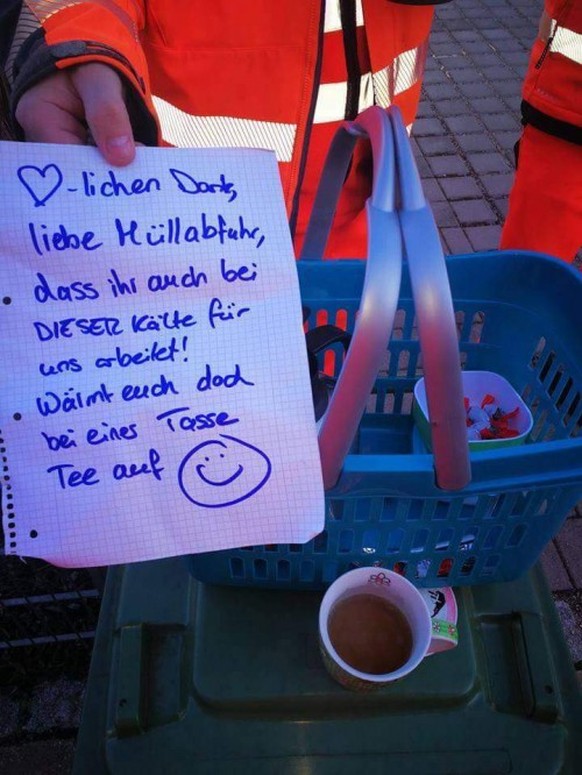 ♡-lichen Dank,
liebe Müllabfuhr,
dass ihr auch bei
DIESER Kälte für
uns arbeitet!
Wärmt euch doch
bei einer Tasse
Tee auf ☺